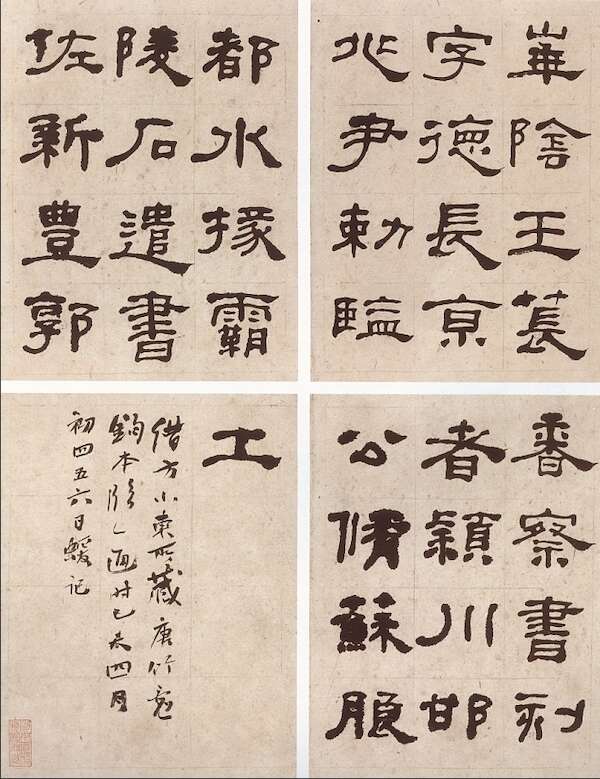 崋陰王萇
字德長京
兆尹勑監
都水掾霸
陵石遣書
佐新豐郭
香察書刻
者潁川邯
公脩蘇
工
借方小東所藏唐竹
鉤本臨一通時己未四月
初四五六日蝯記